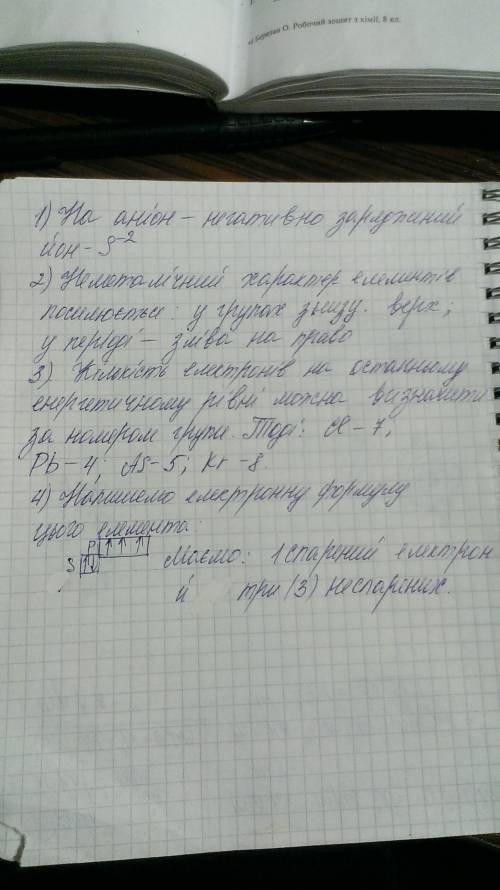 і Березан О. Робочий зошит з хімії, 8 кл.
1) На аніон – негативно заряджений
йон – S⁻²
2) Неметалічний характер елементів
посилюється: у групах знизу. верх;
у періоді – зліва на право
3) Кількість електронів на останньому
енергетичному рівні можна визначити
за номером групи. Тоді: Cl – 7;
Pb – 4; As – 5; Kr – 8.
4) Напишемо електронну формулу
цього елемента:
P ↑ ↑ ↑↑
S ↑↓ Маємо: 1 спарений електрон
й три (3) неспарених.